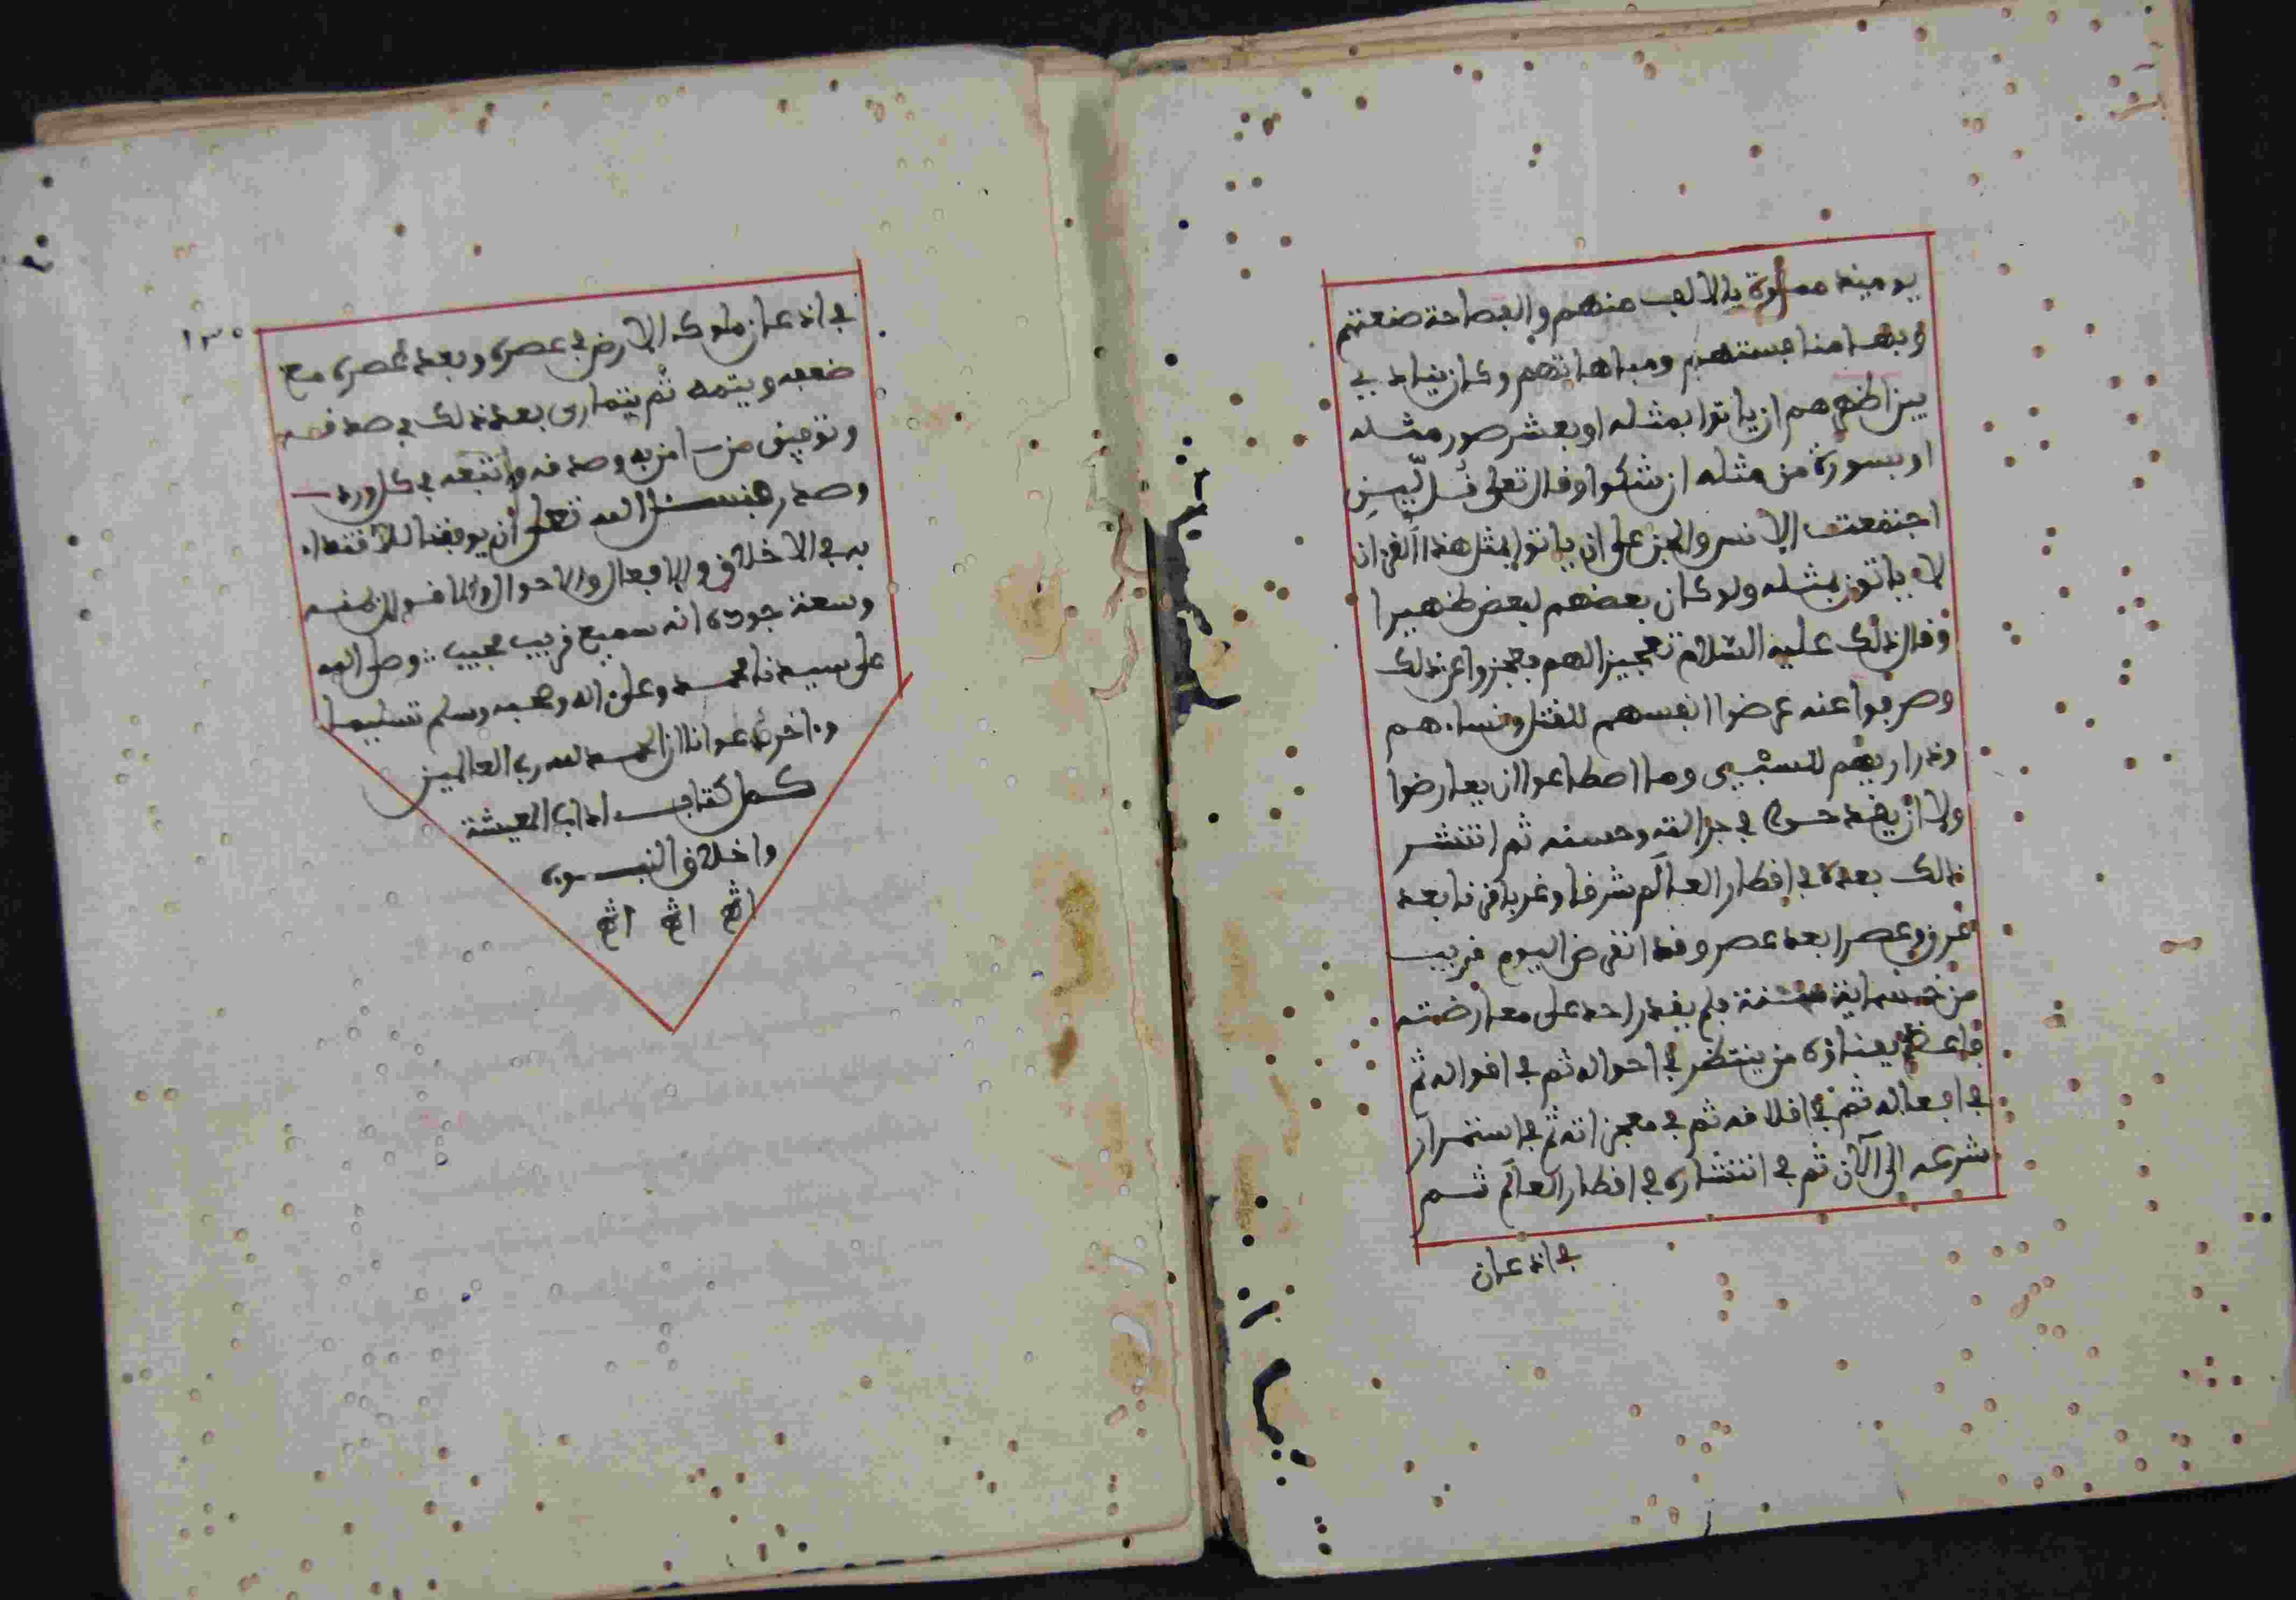 يومئذ مملوة بالالاف منهم والفصاحة صنعتهم
وبها منافستهم ومباهاتهم وكان ينادي
بين اظهرهم ان ياتوا بمثله او بعشر صور مثله
او بسورة من مثله ان شكوا وقال تعلى قل لئن
اجتمعت الانس والجن على ان ياتوا بمثل هذا القرءان
لا ياتون بمثله ولو كان بعضهم لبعض ظهيرا
وقال ذلك عليه السلام تعجيزا لهم فعجزوا عن ذلك
وصرفوا عنه عرضوا انفسهم للقتل ونساءهم
وذراريهم للسبي وما اصطاعوا ان يعارضوا
ولا ان يقدحوا في جزالته وحسنه ثم انتشر
ذلك بعده في اقطار العالم شرقا وغربا قرنا بعد
قرن وعصرا بعد عصر وقد انقرض اليوم قريب
من خمسماية سنة فلم يقدر احد على معارضته
فاعظم بغباوة من ينتظر في احواله ثم في اقواله ثم
في افعاله ثم في اخلاقه ثم في معجزاته ثم في استمرار
شرعه الى الآن ثم في انتشاره في اقطار العالم ثم
في اذعان
١٣٥
في اذعان ملوك الارض في عصره وبعد عصره مع
ضعفه ويتمه ثم يتمارى بعد ذلك في صدقه
وتوفيق من امن به وصدقه واتبعه في كل ورد
وصدر فنسئل الله تعلى ان يوفقنا للاقتداء
به في الاخلاق والافعال والاحوال والاقوال بمنه
وسعة جوده انه سميع قريب مجيب ∴ وصلى الله
على سيدنا محمد وعلى اله وصحبه وسلم تسليما
وءاخر دعوانا ان الحمد لله رب العالمين
كمل كتاب اداب المعيشة
واخلاق النبوه
اﻫ اﻫ اﻫ